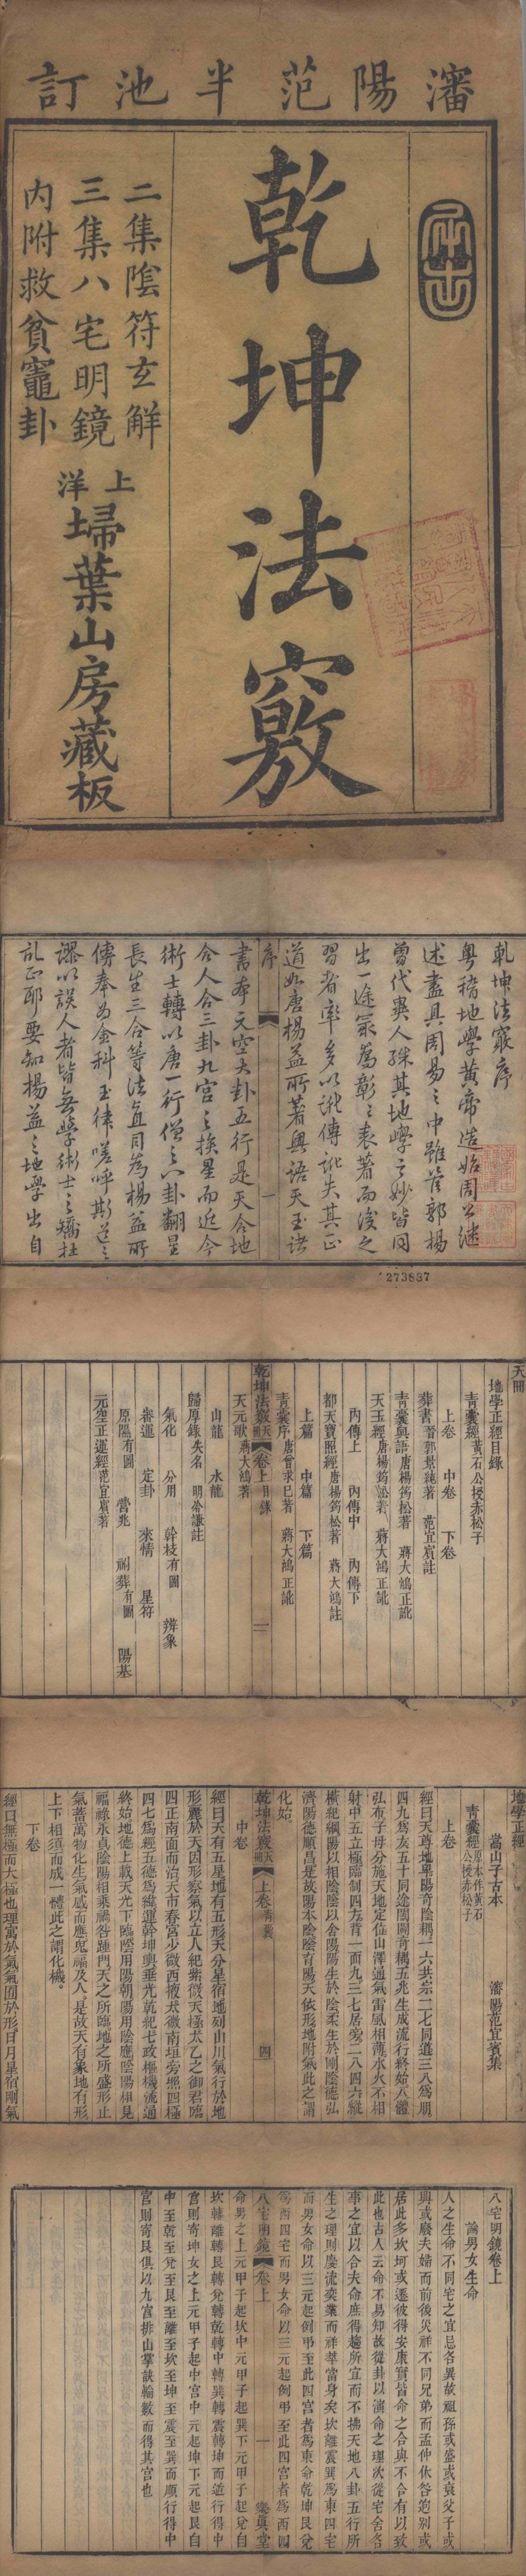 瀋陽范半池訂
乾坤法竅
二集陰符玄解
三集八宅明鏡
內附救貧竈卦
上洋
埽葉山房藏板
乾坤法竅序
粵稽地學黃帝造始周公繼
述盡具周易之中雖管郭楊
曾代異人殊其地學之妙皆同
出一途最為彰之表著而後之
習者率多以訛傳訛失其正
道如唐楊益所著奧語天玉諸
序
一
書本元空大卦五行是天合地
合人合三卦九宮之挨星而近今
術士轉以唐一行僧之八卦翻星
長生三合等法直同為楊益所
傳奉為金科玉律嗟呼斯道之
謬以誤人者皆無學術士之矯枉
亂正耶要知楊益之地學出自
273837
天冊
地學正經目錄
青囊經黃石公授赤松子
上卷 中卷 下卷
葬書晉郭景純著 范宜賓註
青囊奧語唐楊筠松著 蔣大鴻正訛
天玉經唐楊筠松著 蔣大鴻正訛
內傳上 內傳中 內傳下
都天寶照經唐楊筠松著 蔣大鴻註
上篇 中篇 下篇
青囊序唐曾求己著 蔣大鴻正訛
乾坤法竅天冊 卷上目錄 一
天元歌蔣大鴻著
山龍 水龍
歸厚錄失名 明冷謙註
氣化 分用 幹枝有圖 辨象
審運 定卦 來情 星符
原隰有圖 營兆 祔葬有圖 陽基
元空正運經范宜賓著
地學正經
嵩山子古本 瀋陽范宜賓集
青囊經原本作黃石公授赤松子
上卷
經曰天尊地卑陽奇陰耦一六共宗二七同道三八為朋
四九為友五十同途闔闢奇耦五兆生成流行終始八體
弘布子母分施天地定位山澤通氣雷風相薄水火不相
射中五立極臨制四方背一面九三七居旁二八四六縱
橫紀綱陽以相陰陰以含陽陽生於陰柔生於剛陰德弘
濟陽德順昌是故陽本陰陰育陽天依形地附氣此之謂
化始
乾坤法竅天冊 上卷青囊 四
中卷
經曰天有五星地有五形天分星宿地列山川氣行於地
形麗於天因形察氣以立人紀紫微天極太乙之御君臨
四正南面而治天市春宮少微西掖太微南垣旁照四極
四七為經五德為緯運斡坤輿垂光乾紀七政樞機流通
終始地德上載天光下臨陰用陽朝陽用陰應陰陽相見
福祿永貞陰陽相乘禍咎踵門天之所臨地之所盛形止
氣蓄萬物化生氣感而應鬼福及人是故天有象地有形
上下相須而成一體此之謂化機。
下卷
經曰無極而太極也理寓於氣氣囿於形日月星宿剛氣
八宅明鏡卷上
論男女生命
人之生命不同宅之宜忌各異故祖孫或盛或衰父子或
興或廢夫婦而前後災祥不同兄弟而孟仲休咎迥別或
居此多坎坷或遷彼得安康實皆命之合與不合有以致
此也古人云命不易知故從卦以演命之理次從宅舍各
事之宜以合夫命庶得趨所宜而不拂天地八卦五行所
生之理則慶流奕葉而祥萃當身矣坎離震巽為東四宅
而男女命以三元起例弔至此四宮者為東命乾坤艮兌
為西四宅而男女命以三元起例弔至此四宮者為西四
八宅明鏡 卷上 一 樂真堂
命男之上元甲子起坎中元甲子起巽下元甲子起兌自
坎轉離轉艮轉兌轉乾轉中轉巽轉震轉坤而逆行得中
宮則寄坤女之上元甲子起中宮中元起坤下元起艮自
中至乾至兌至艮至離至坎至坤至震至巽而順行得中
宮則寄艮俱以九宮排山掌訣輪數而得其宮也